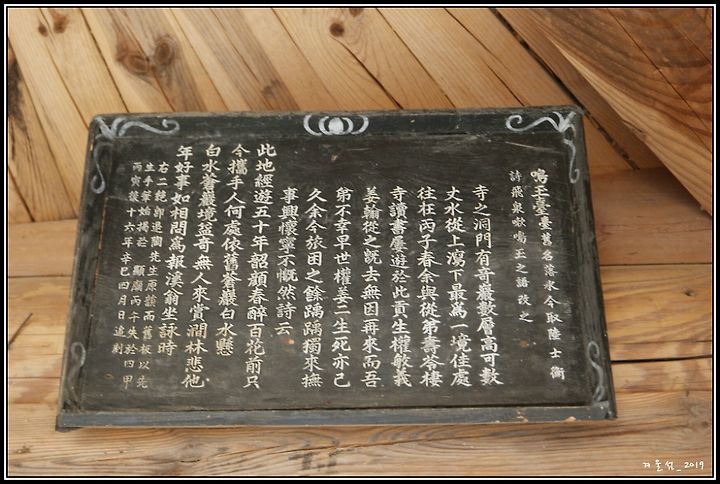 鳴玉臺臺舊名落水今取陸士衡
詩飛泉漱鳴玉之語改之
寺之洞門有奇巖數層高可數
丈水從上瀉下最爲一境佳處
往在丙子春余與從弟壽苓棲
寺讀書屢遊於此貢生權敏義
姜翰從之旣去無因再來而吾
弟不幸早世權姜二生死亦已
久余今旅困之餘踽踽獨來撫
事興懷寧不慨然詩云
此地經遊五十年韶顔春醉百花前只
今攜手人何處依舊蒼巖白水懸
白水蒼巖境益奇無人來賞澗林悲他
年好事如相問爲報溪翁坐詠時
右二絶卽退陶先生原韻而舊板以先
生手筆始揭於 顯廟丙午失於四甲
丙寅後十六年辛巳四月日追刻
겨울섬_2019